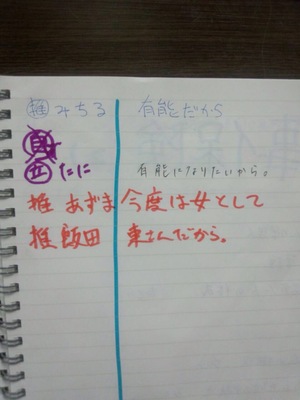 推 みちる 有能だから
立 たに 有能になりたいから。
推 あずま 今度は女として
推 飯田 東さんだから。